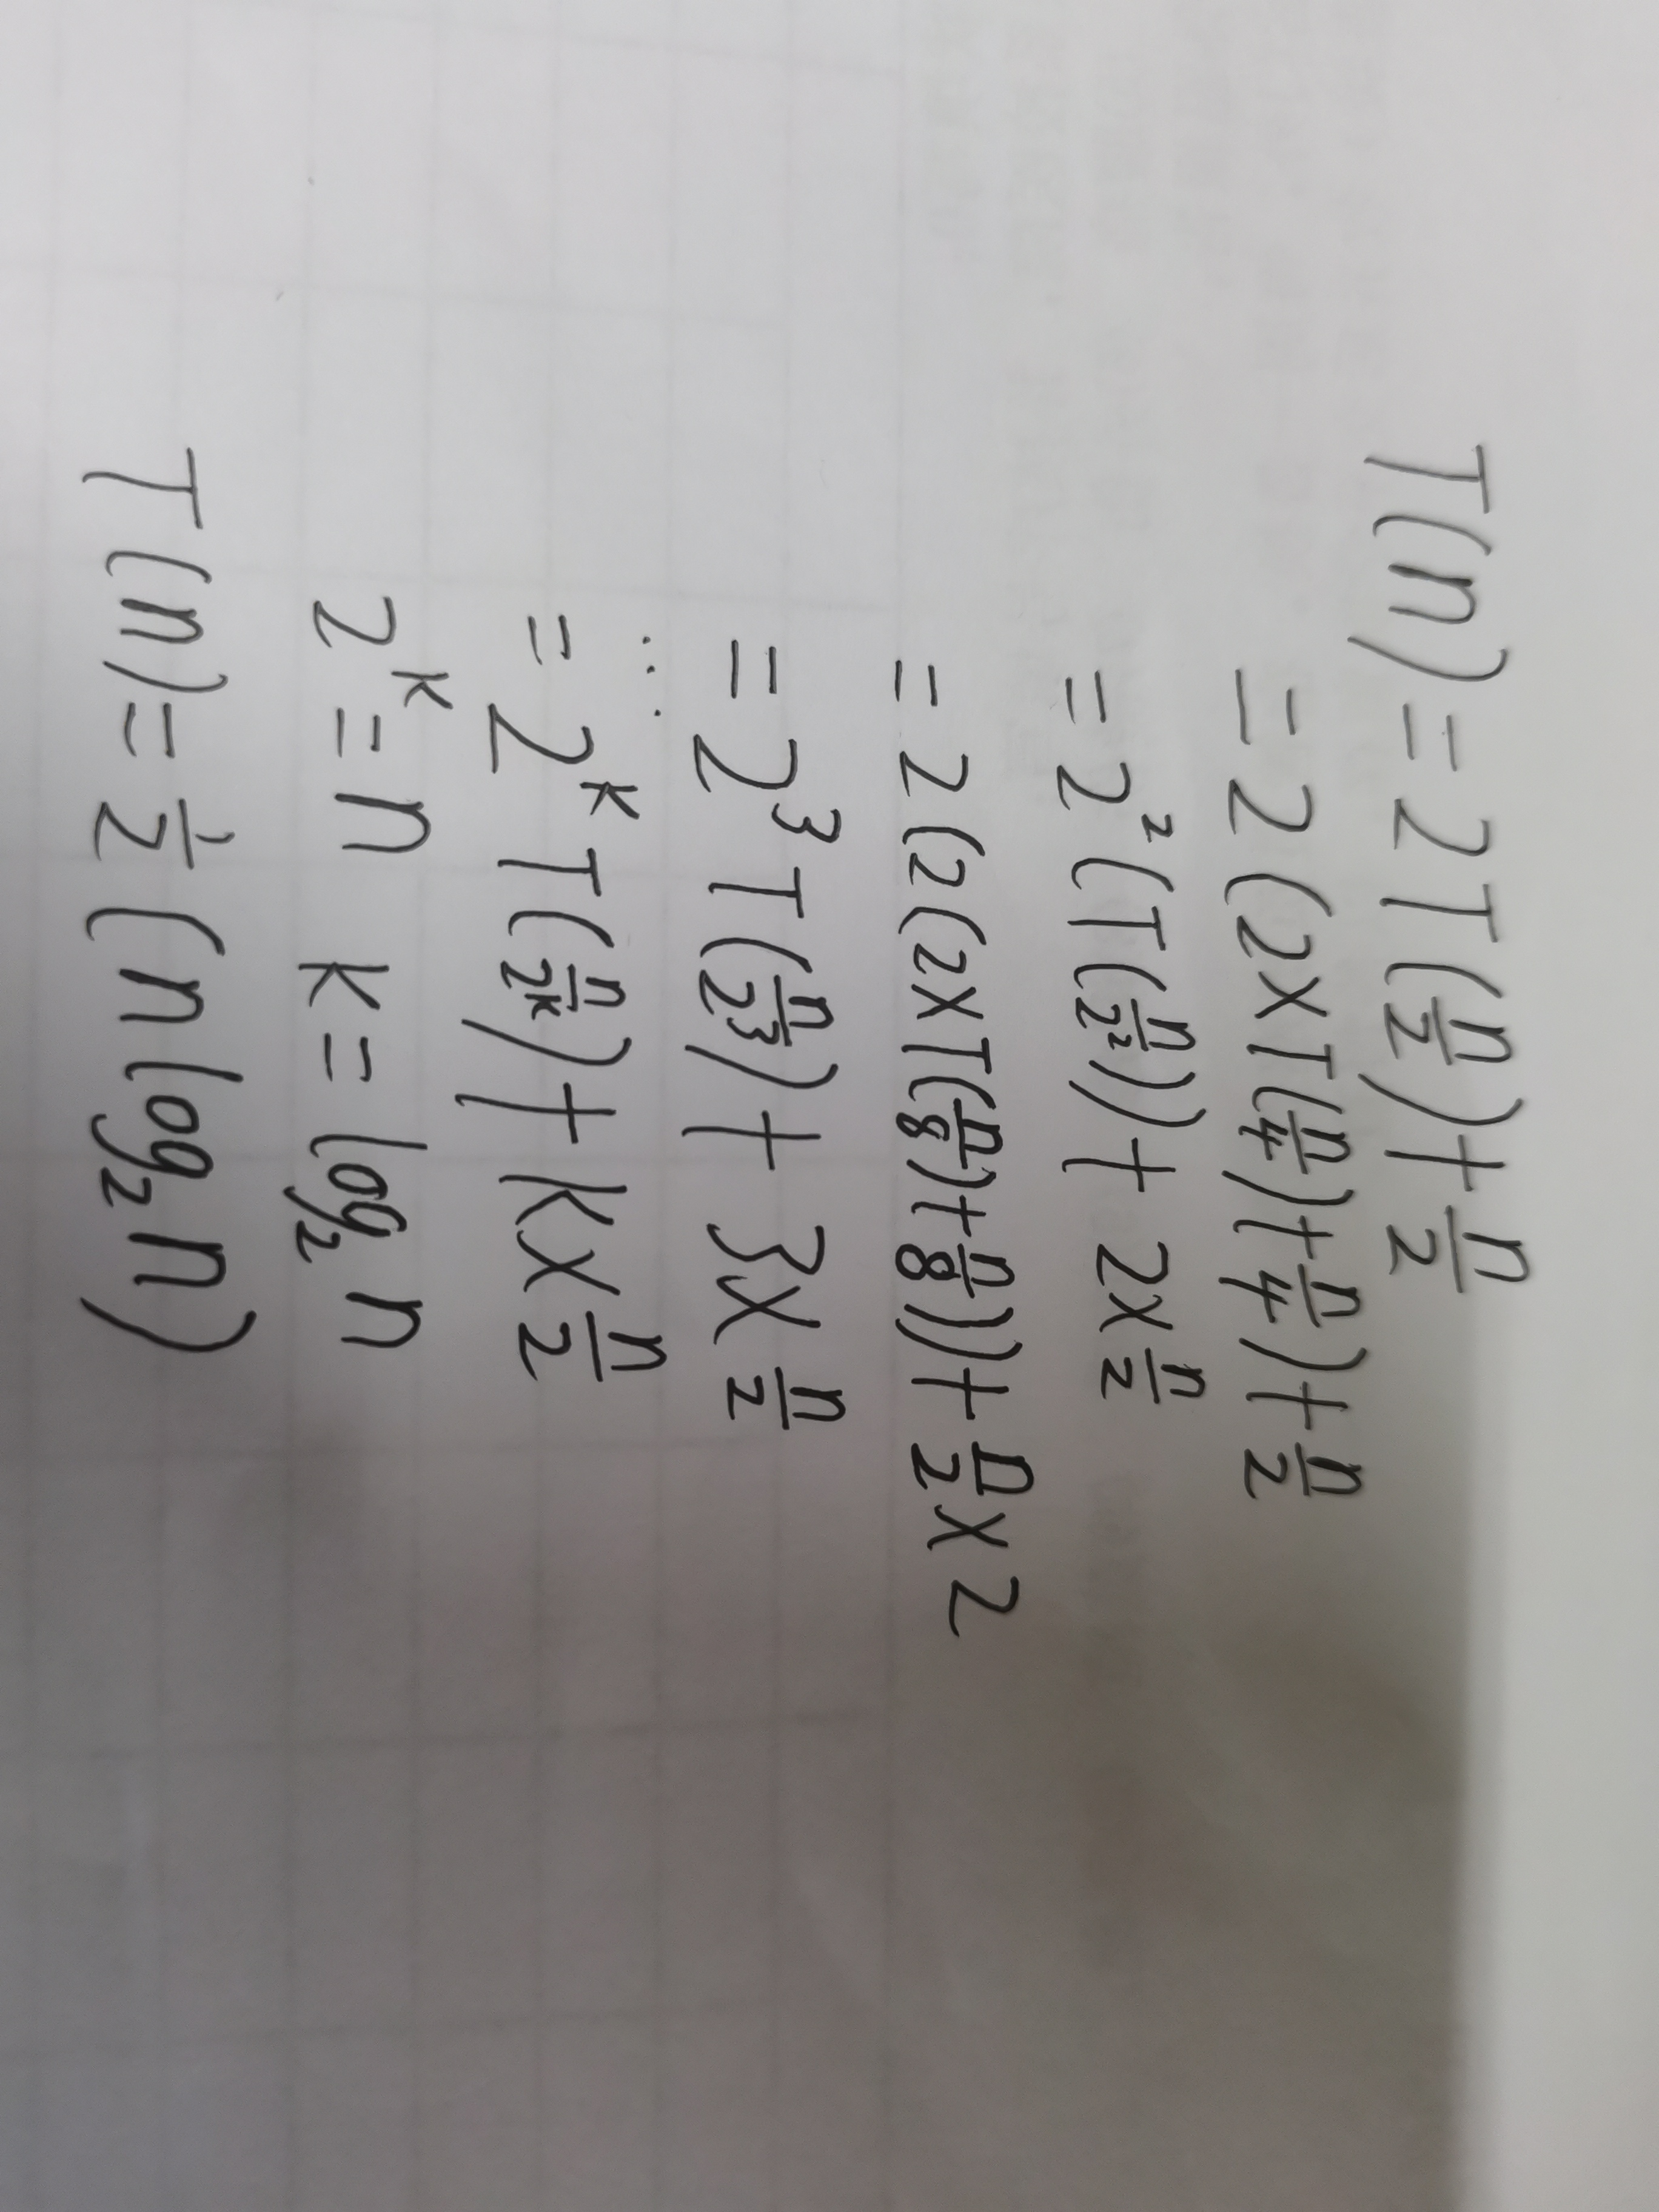 T(n) = 2T(n/2) + n/2
= 2(2×T(n/4) + n/4) + n/2
= 2²(T(n/2²)) + 2×n/2
= 2(2(2×T(n/8) + n/8)) + n/2×2
= 2³T(n/2³) + 3×n/2
⋮
= 2ᵏT(n/2ᵏ) + k×n/2
2ᵏ = n k = log₂n
T(n) = 1/2(n log₂n)